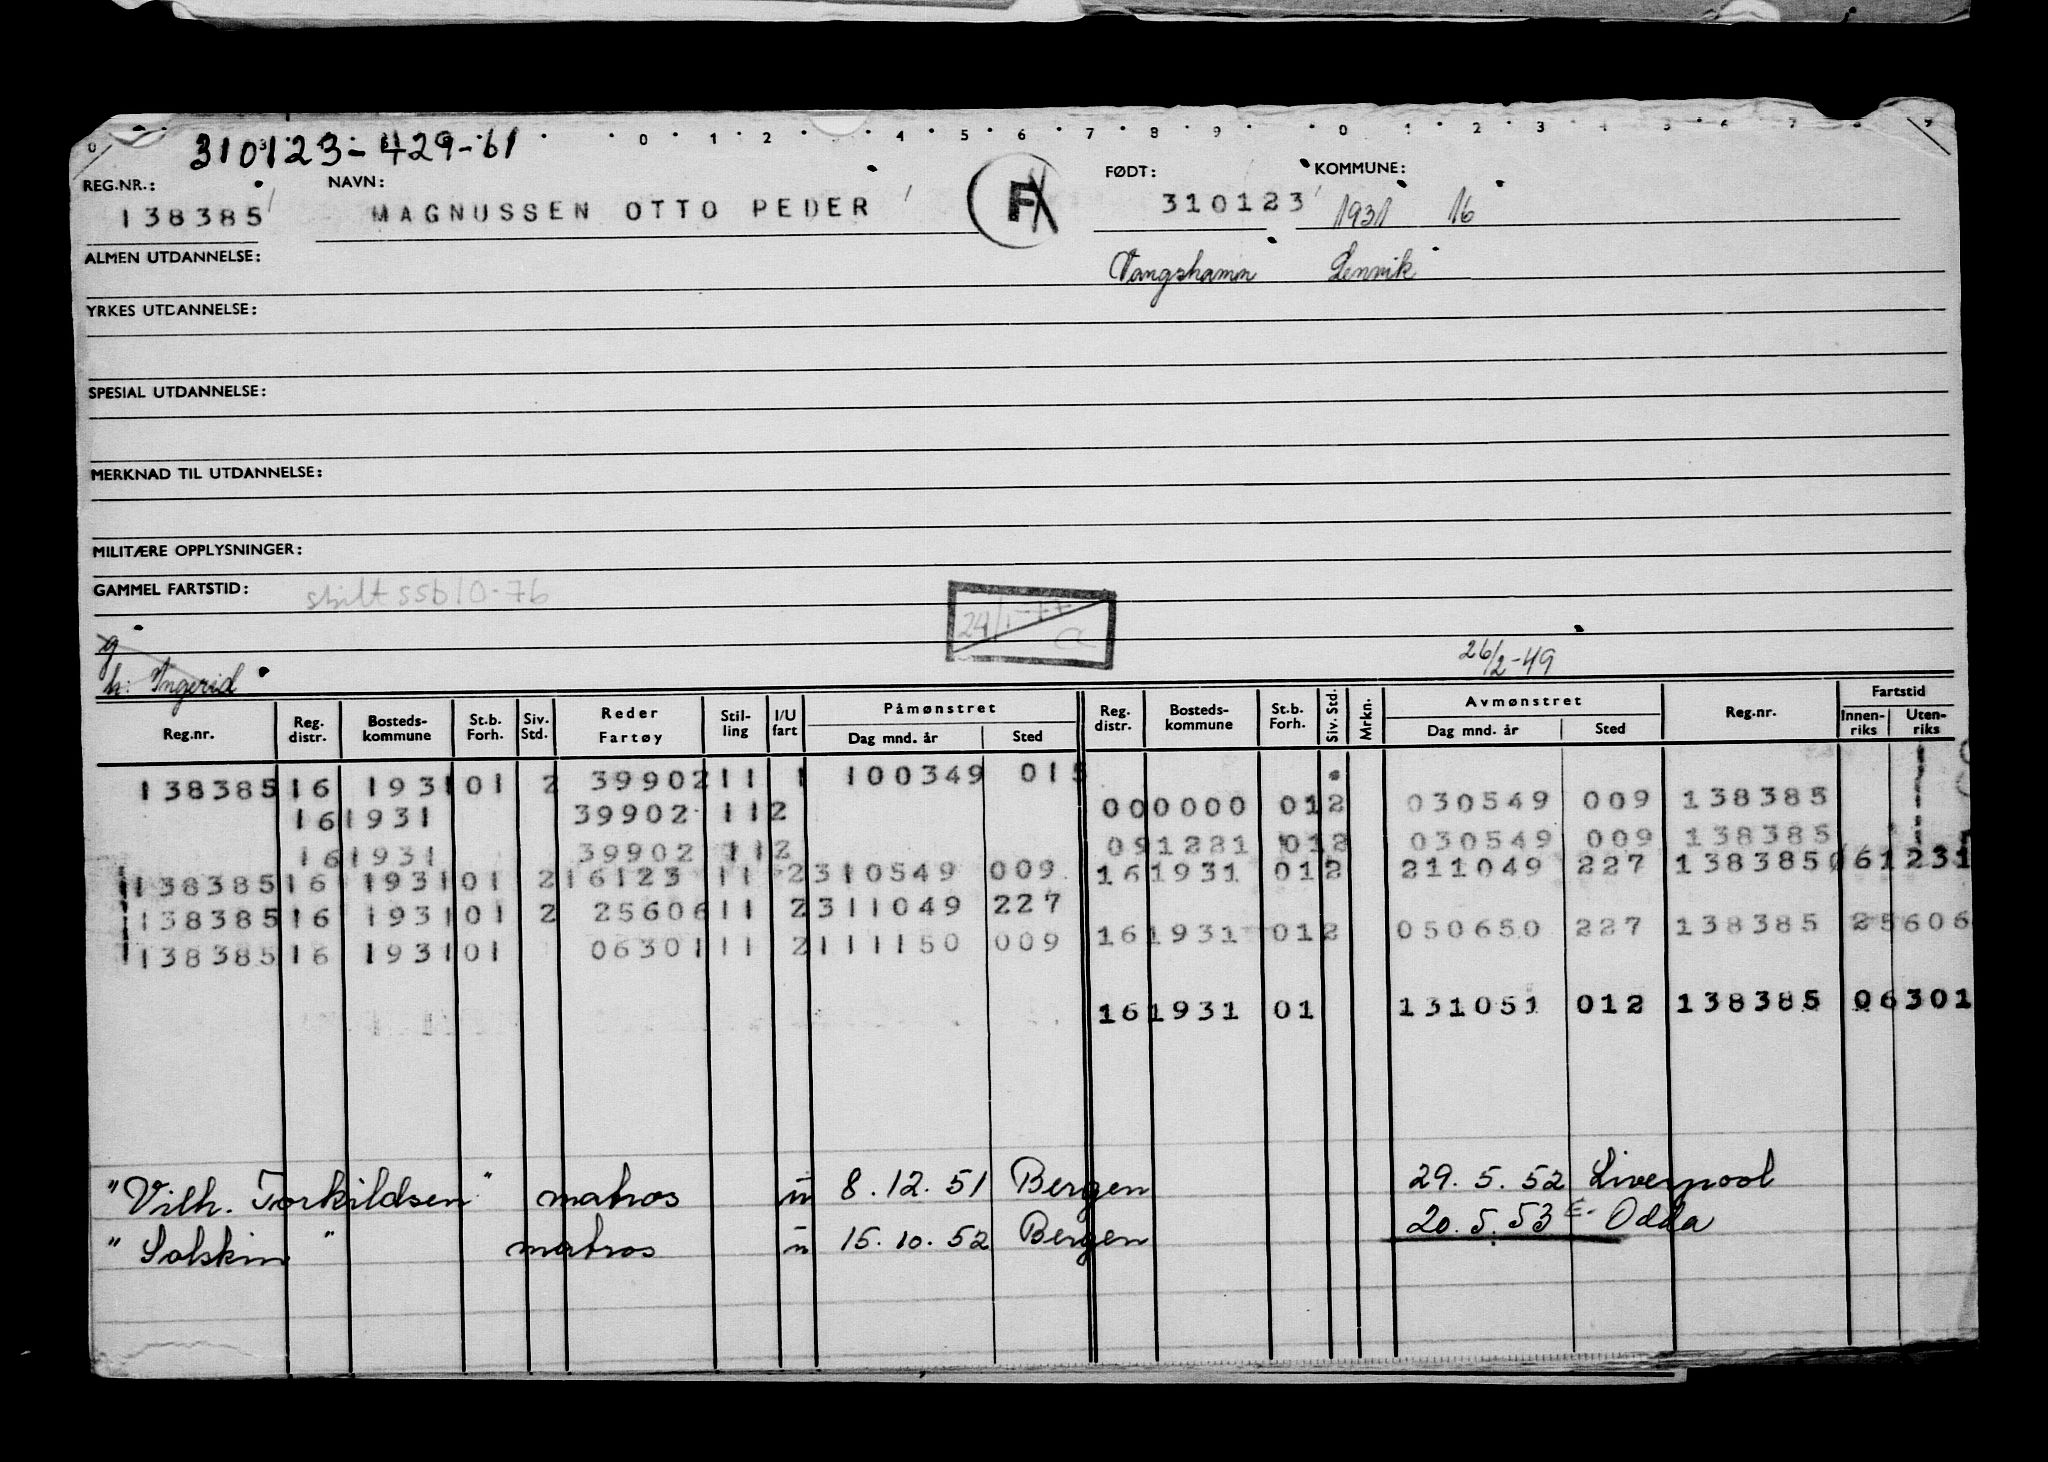 310123-429-61
0 1 2 4 5 6 7 8 9 0 1 2 3 4 5 6 7 8 9
REG.NR.: NAVN: FØDT: KOMMUNE:
138385 MAGNUSSEN OTTO PEDER F 310123 1931 16
ALMEN UTDANNELSE: Vangshamn Lenvik
YRKES UTDANNELSE:
SPESIAL UTDANNELSE:
MERKNAD TIL UTDANNELSE:
MILITÆRE OPPLYSNINGER:
GAMMEL FARTSTID: skilt ssb 10-76
24/1-77
g
h: Ingerid 26/2-49
Reg.nr. Reg. distr. Bosteds-kommune St.b. Forh. Siv. Std. Reder Fartøy Stil-ling I/U fart Påmønstret Dag mnd. år Sted Reg. distr. Bosteds-kommune St.b. Forh. Siv. Std. Mrkn. Avmønstret Dag mnd. år Sted Reg.nr. Fartstid Innen-riks Uten-riks
138385 16 1931 01 2 39902 11 1 100349 015
16 1931 39902 11 2 000000 01 2 030549 009 138385
16 1931 39902 11 2 091221 01 2 030549 009 138385
138385 16 1931 01 2 16123 11 2 310549 009 16 1931 01 2 211049 227 138385 61231
138385 16 1931 01 2 25606 11 2 311049 227 16 1931 01 2 050650 227 138385 25606
138385 16 1931 01 06301 11 2 111150 009
16 1931 01 131051 012 138385 06301
"Vilh. Torkildsen" matros u 8.12.51 Bergen 29.5.52 Liverpool
"Solskin" matros u 15.10.52 Bergen 20.5.53 E. Odda